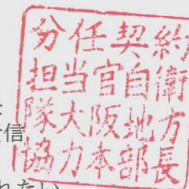 分任契約
担当官自衛
隊大阪地方
協力本部長
信
れたい